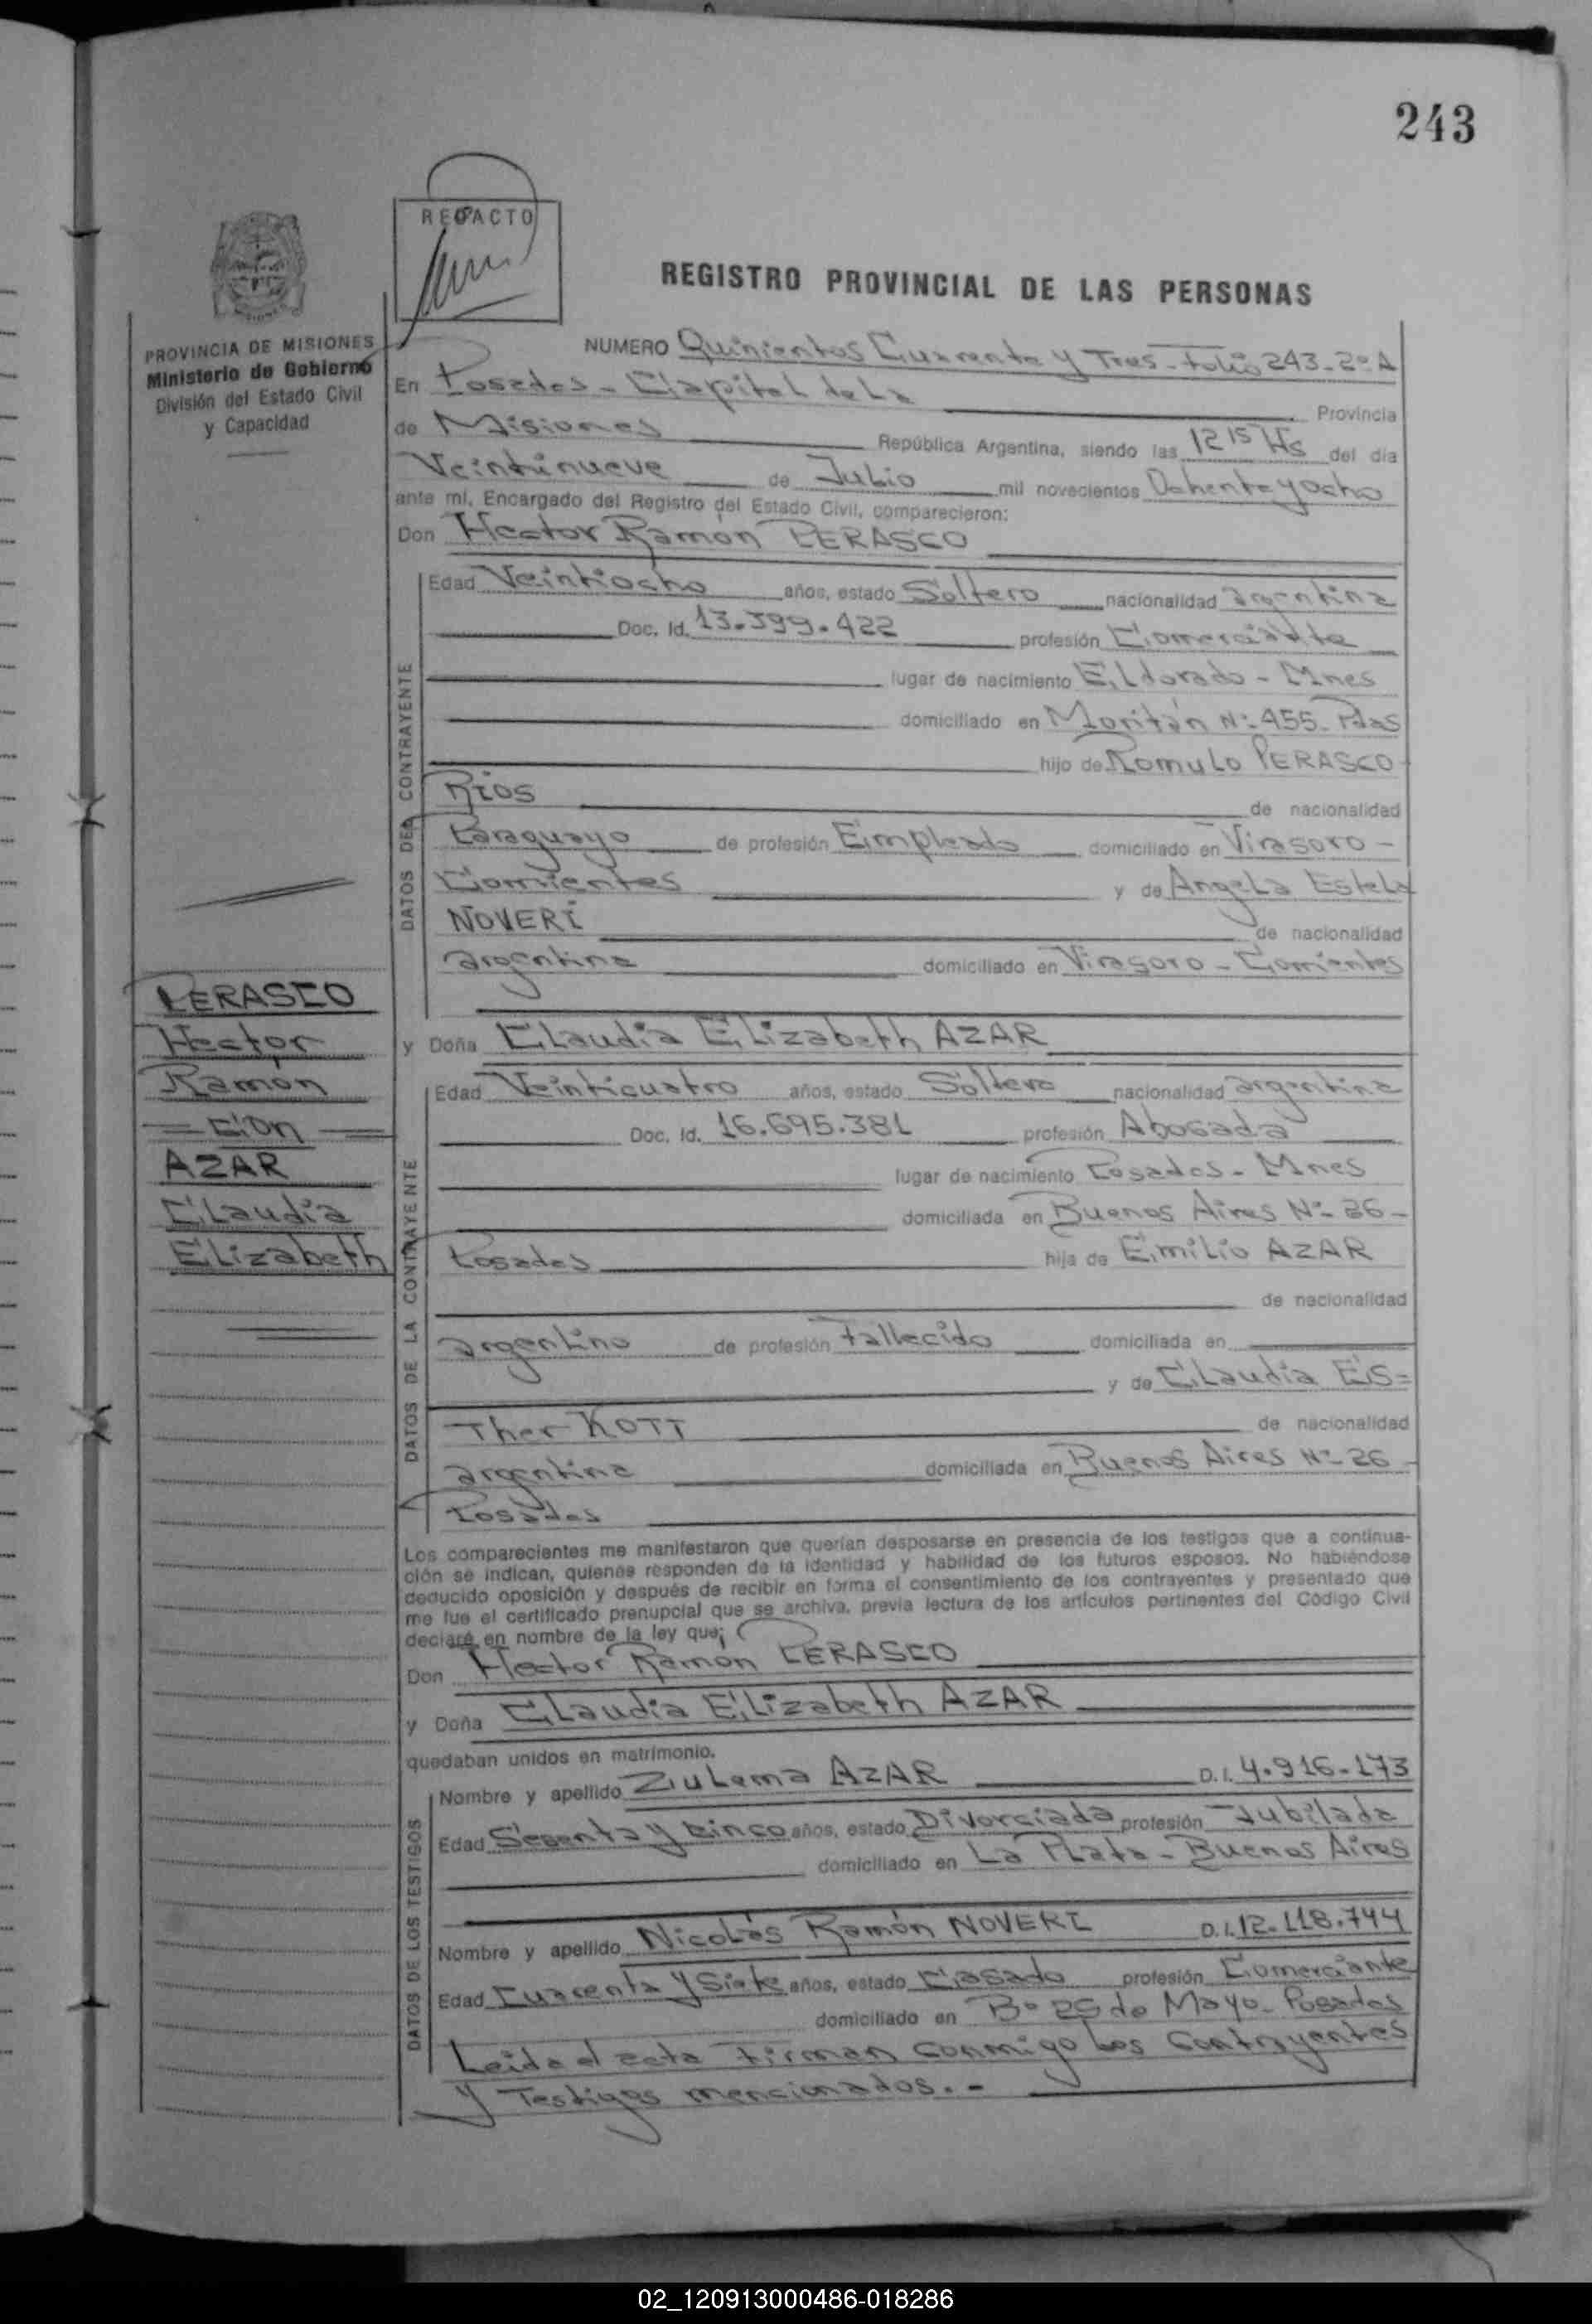 243
REGACTO
REGISTRO PROVINCIAL DE LAS PERSONAS
PROVINCIA DE MISIONES
Ministerio de Gobierno
División del Estado Civil
y Capacidad
NUMERO Quinientos Cuarenta y Tres - Folio 243 - 2º A
En Posadas - Capital de La Provincia
de Misiones República Argentina, siendo las 12 15 Hs del día
Veintinueve de Julio mil novecientos Ochenta y ocho
ante mí, Encargado del Registro del Estado Civil, comparecieron:
Don Hector Ramon PERASCO
DATOS DEL CONTRAYENTE
Edad Veintiocho años, estado Soltero nacionalidad argentina
Doc. Id. 13.399.422 profesión Comerciante
lugar de nacimiento Eldorado - Mnes
domiciliado en Moritán Nº 455. Pdas
hijo de Romulo PERASCO
Rios de nacionalidad
Paraguayo de profesión Empleado domiciliado en Virasoro -
Corrientes y de Angela Estela
NOVERI de nacionalidad
argentina domiciliado en Virasoro - Corrientes
PERASCO
Hector
Ramon
= Con =
AZAR
Claudia
Elizabeth
y Doña Claudia Elizabeth AZAR
DATOS DE LA CONTRAYENTE
Edad Veinticuatro años, estado Soltera nacionalidad argentina
Doc. Id. 16.695.381 profesión Abogada
lugar de nacimiento Posadas - Mnes
domiciliada en Buenos Aires Nº 26 -
Posadas hija de Emilio AZAR
de nacionalidad
argentino de profesión Fallecido domiciliada en
y de Claudia Es=
Ther KOTT de nacionalidad
argentina domiciliada en Buenos Aires Nº 26 -
Posadas
Los comparecientes me manifestaron que querían desposarse en presencia de los testigos que a continua-
ción se indican, quienes responden de la identidad y habilidad de los futuros esposos. No habiéndose
deducido oposición y después de recibir en forma el consentimiento de los contrayentes y presentado que
me fue el certificado prenupcial que se archiva, previa lectura de los artículos pertinentes del Código Civil
declaré en nombre de la ley que;
Don Hector Ramón PERASCO
y Doña Claudia Elizabeth AZAR
quedaban unidos en matrimonio.
DATOS DE LOS TESTIGOS
Nombre y apellido Zulema AZAR D.I. 4.916.173
Edad Sesenta y cinco años, estado Divorciada profesión Jubilada
domiciliado en La Plata - Buenos Aires
Nombre y apellido Nicolás Ramón NOVERI D.I. 12.118.744
Edad Cuarenta y Siete años, estado Casado profesión Comerciante
domiciliado en Bº 25 de Mayo - Posadas
Leida el acta Firman conmigo Los Contrayentes
y Testigos mencionados. -
02_120913000486-018286